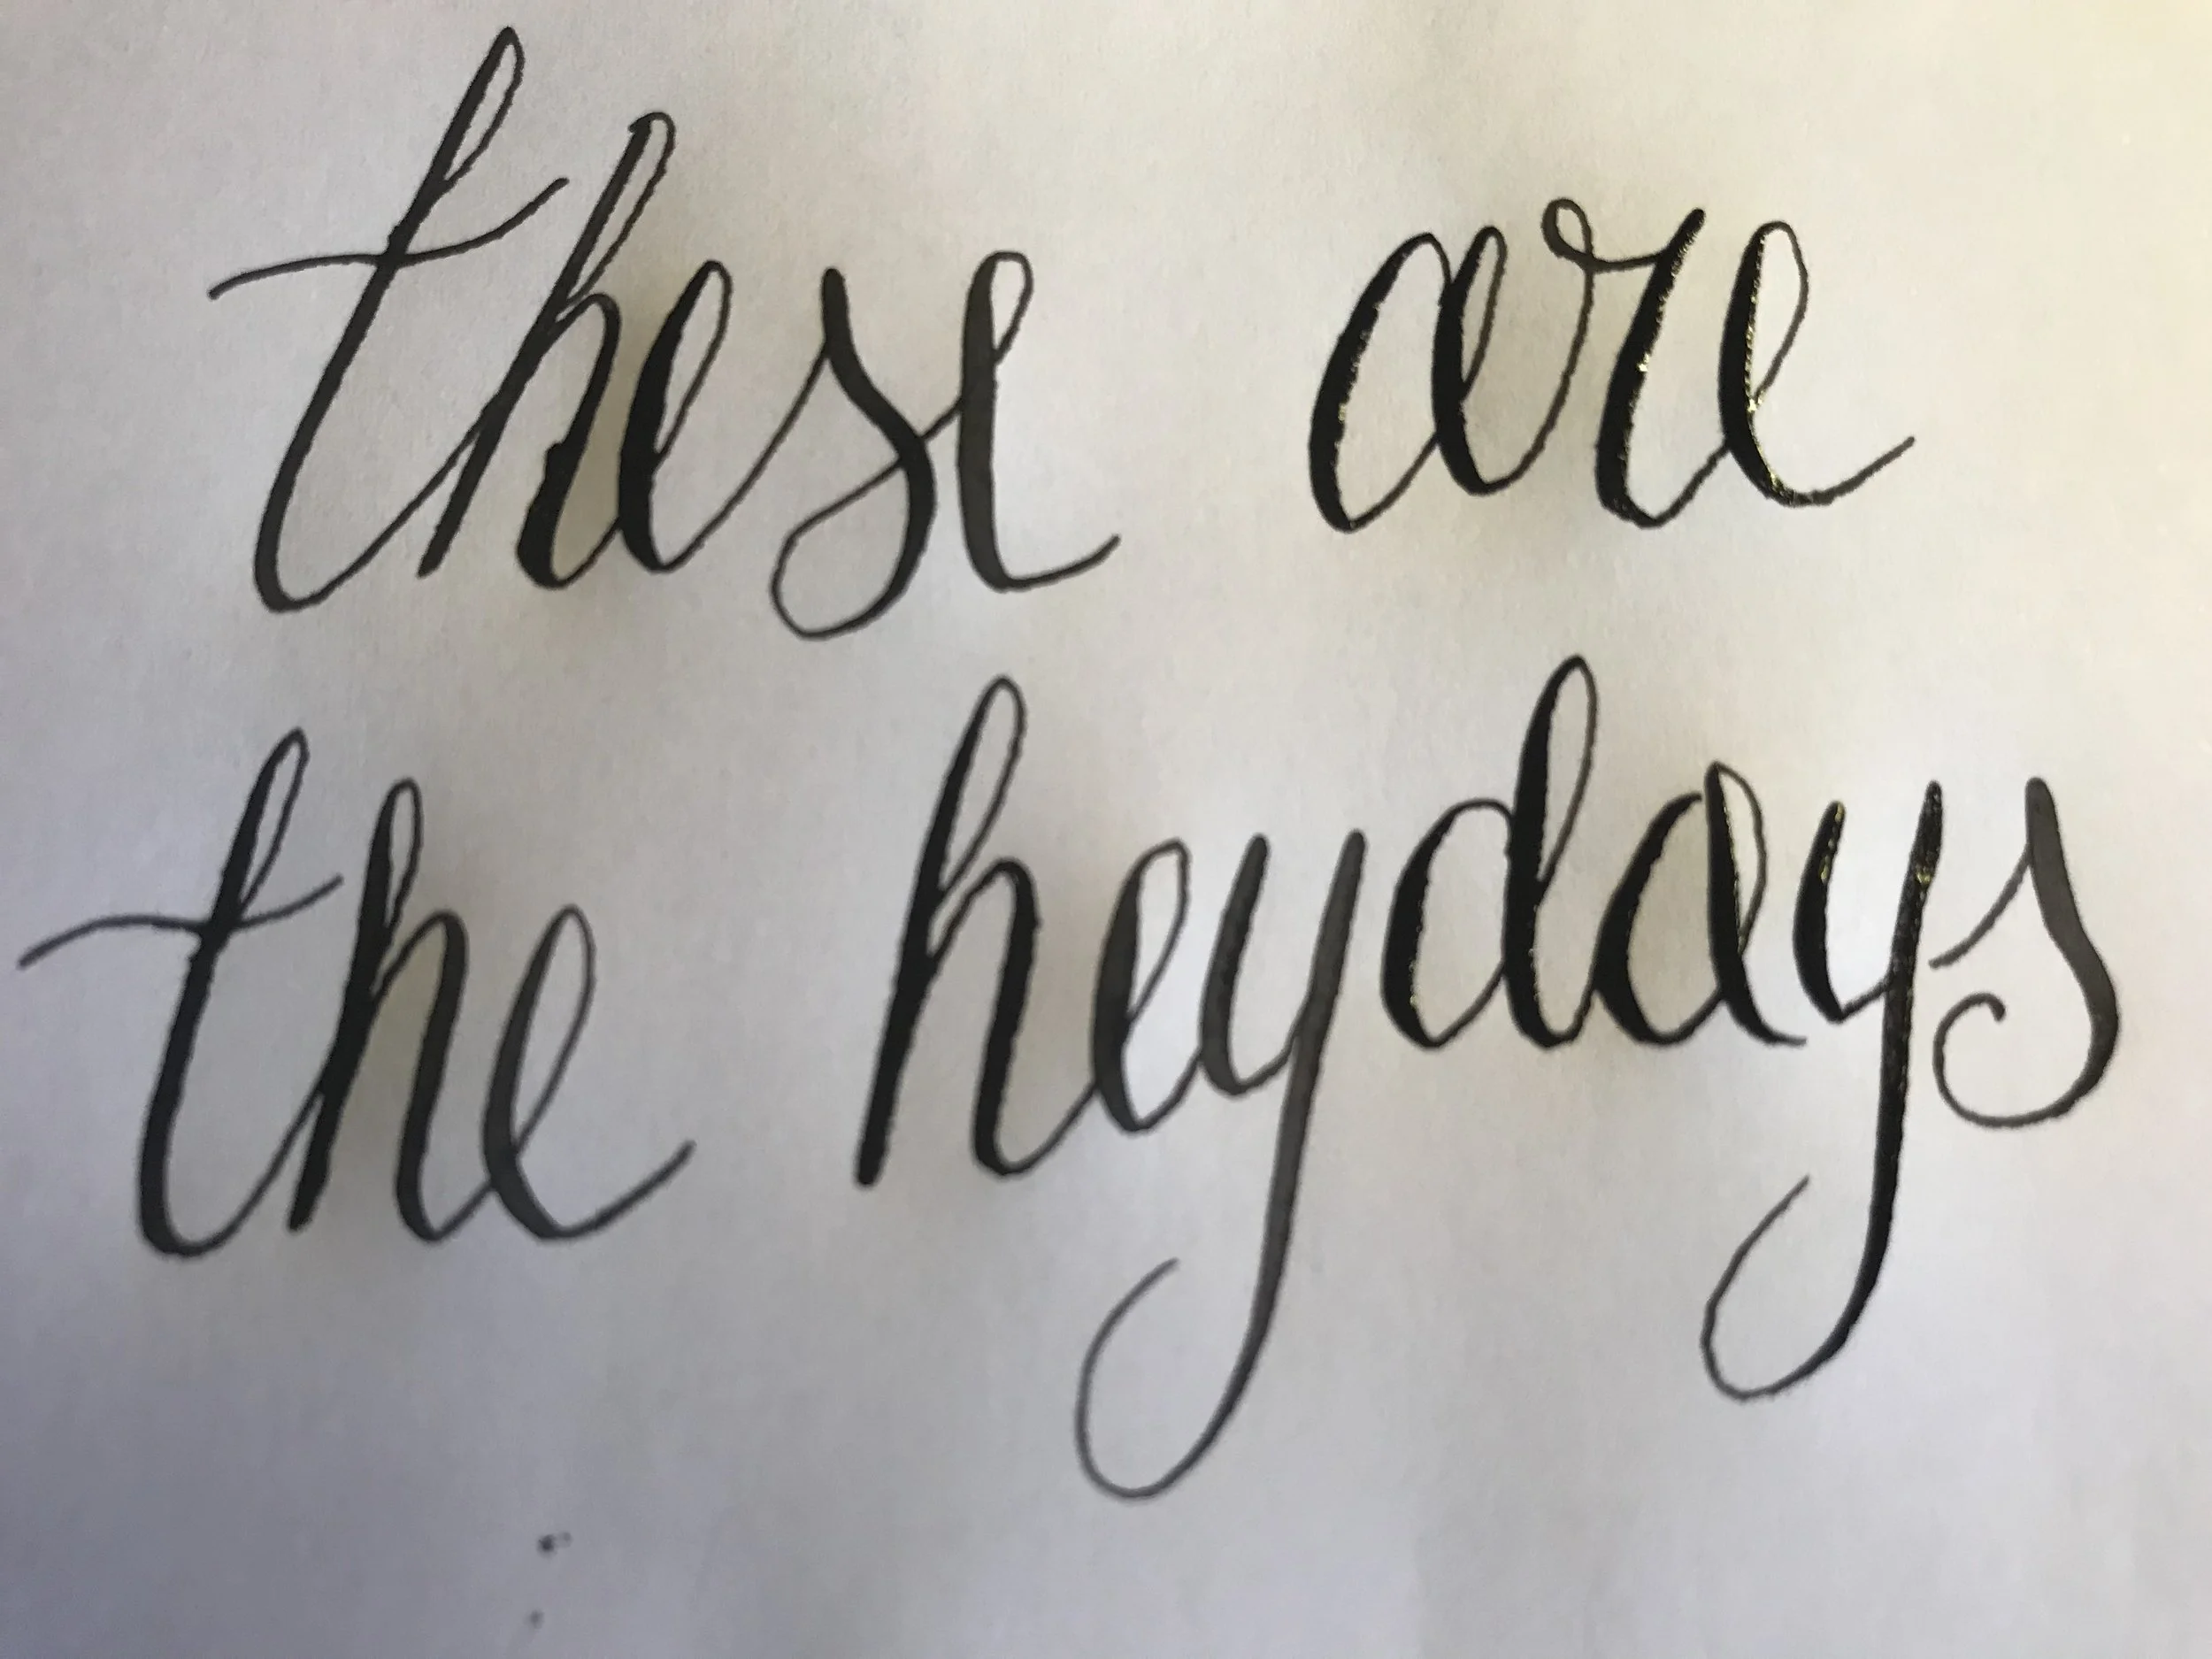 these are
the heydays